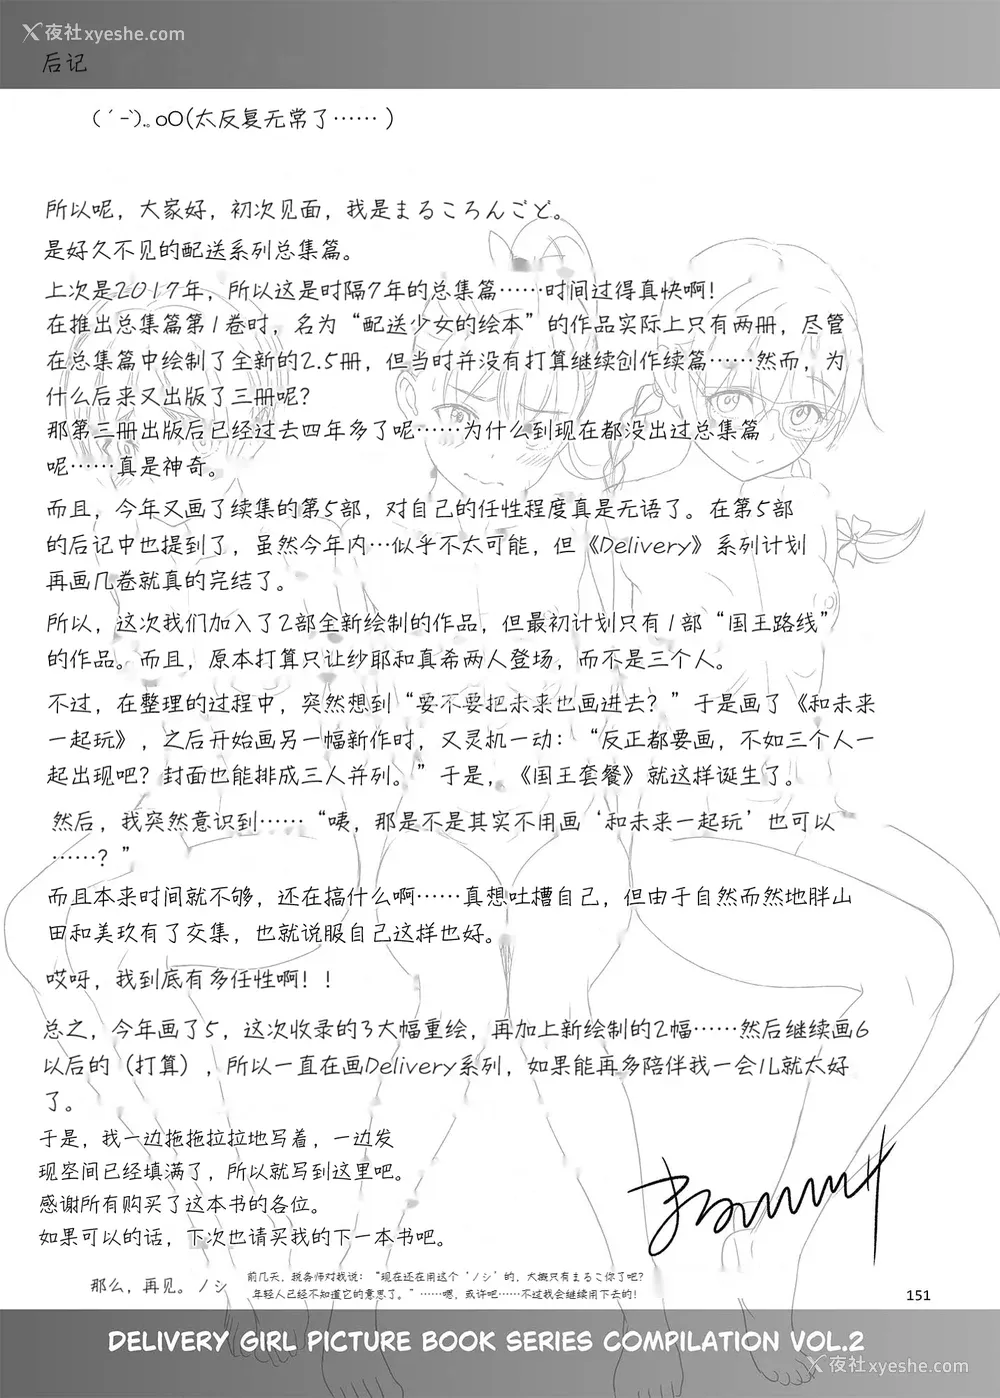 夜社xyeshe.com
后记
( ´ -`).｡oO(太反复无常了…… )
所以呢，大家好，初次见面，我是まるころんごど。
是好久不见的配送系列总集篇。
上次是2017年，所以这是时隔7年的总集篇……时间过得真快啊！
在推出总集篇第1卷时，名为“配送少女的绘本”的作品实际上只有两册，尽管
在总集篇中绘制了全新的2.5册，但当时并没有打算继续创作续篇……然而，为
什么后来又出版了三册呢？
那第三册出版后已经过去四年多了呢……为什么到现在都没出过总集篇
呢……真是神奇。
而且，今年又画了续集的第5部，对自己的任性程度真是无语了。在第5部
的后记中也提到了，虽然今年内…似乎不太可能，但《Delivery》系列计划
再画几卷就真的完结了。
所以，这次我们加入了2部全新绘制的作品，但最初计划只有1部“国王路线”
的作品。而且，原本打算只让纱耶和真希两人登场，而不是三个人。
不过，在整理的过程中，突然想到“要不要把未来也画进去？”于是画了《和未来
一起玩》，之后开始画另一幅新作时，又灵机一动：“反正都要画，不如三个人一
起出现吧？封面也能排成三人并列。”于是，《国王套餐》就这样诞生了。
然后，我突然意识到……“咦，那是不是其实不用画‘和未来一起玩’也可以
……？”
而且本来时间就不够，还在搞什么啊……真想吐槽自己，但由于自然而然地胖山
田和美玖有了交集，也就说服自己这样也好。
哎呀，我到底有多任性啊！！
总之，今年画了5，这次收录的3大幅重绘，再加上新绘制的2幅……然后继续画6
以后的（打算），所以一直在画Delivery系列，如果能再多陪伴我一会儿就太好
了。
于是，我一边拖拖拉拉地写着，一边发
现空间已经填满了，所以就写到这里吧。
感谢所有购买了这本书的各位。
如果可以的话，下次也请买我的下一本书吧。
那么，再见。ノシ
前几天，税务师对我说：“现在还在用这个‘ノシ’的，大概只有まるこ你了吧？
年轻人已经不知道它的意思了。”……嗯，或许吧……不过我会继续用下去的！
151
DELIVERY GIRL PICTURE BOOK SERIES COMPILATION VOL.2
夜社xyeshe.com